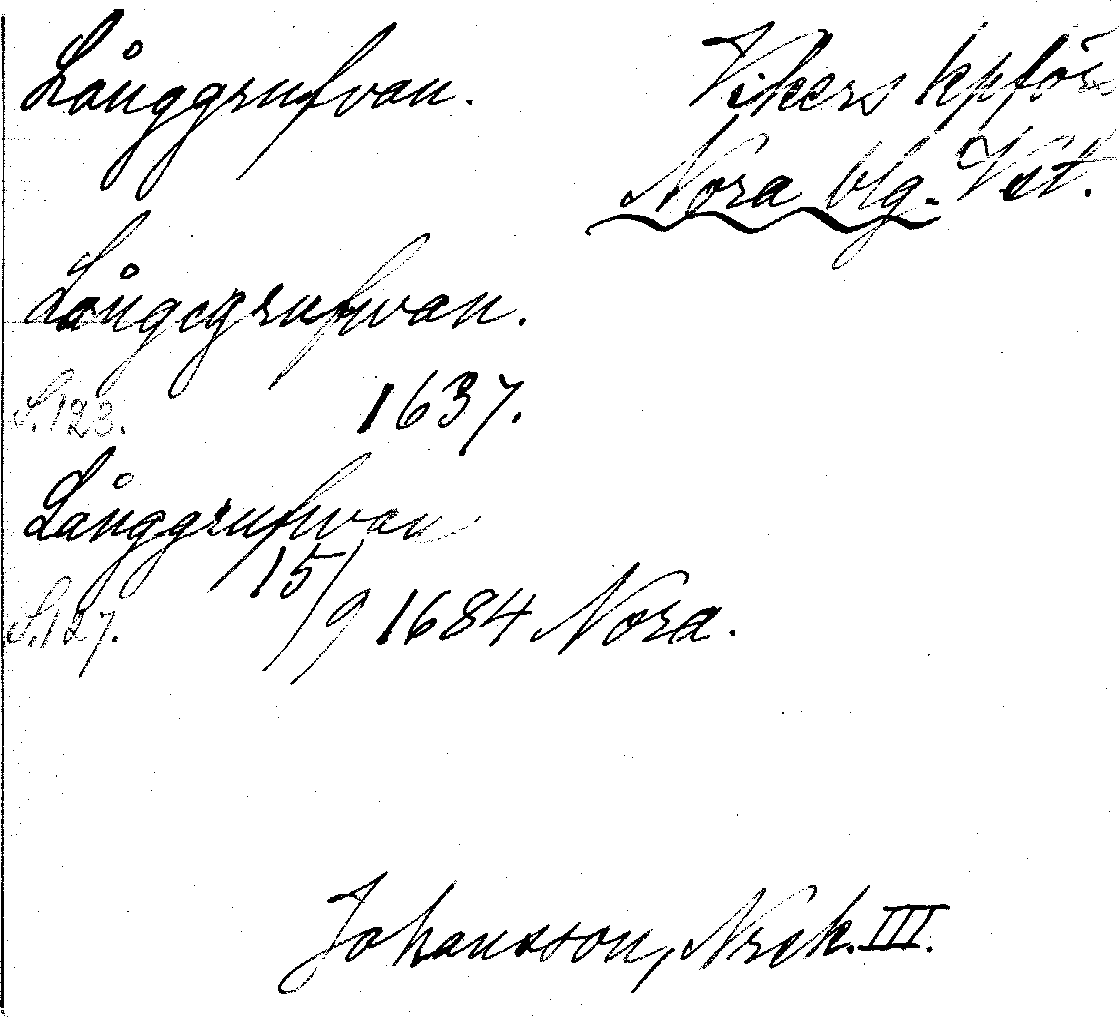 Långgrufvan. Vikers kpför
Nora blg. Vst.
Långegrufwan.
S.123. 1637.
Långgrufwan
S.127. 15/9 1684 Nora.
Johansson, Nrck. III.